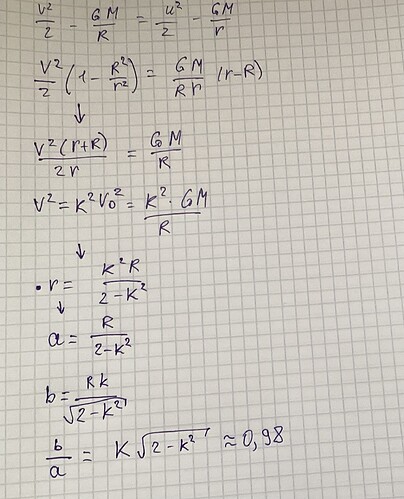 V²/2 - GM/R = u²/2 - GM/r
V²/2 (1 - R²/r²) = GM/Rr (r-R)
↓
V²(r+R)/2r = GM/R
V² = K²V₀² = K²·GM/R
↓
·r = K²R/2-K²
↓
a = R/2-K²
b = RK/√2-K²
b/a = K√2-K² ≈ 0,98